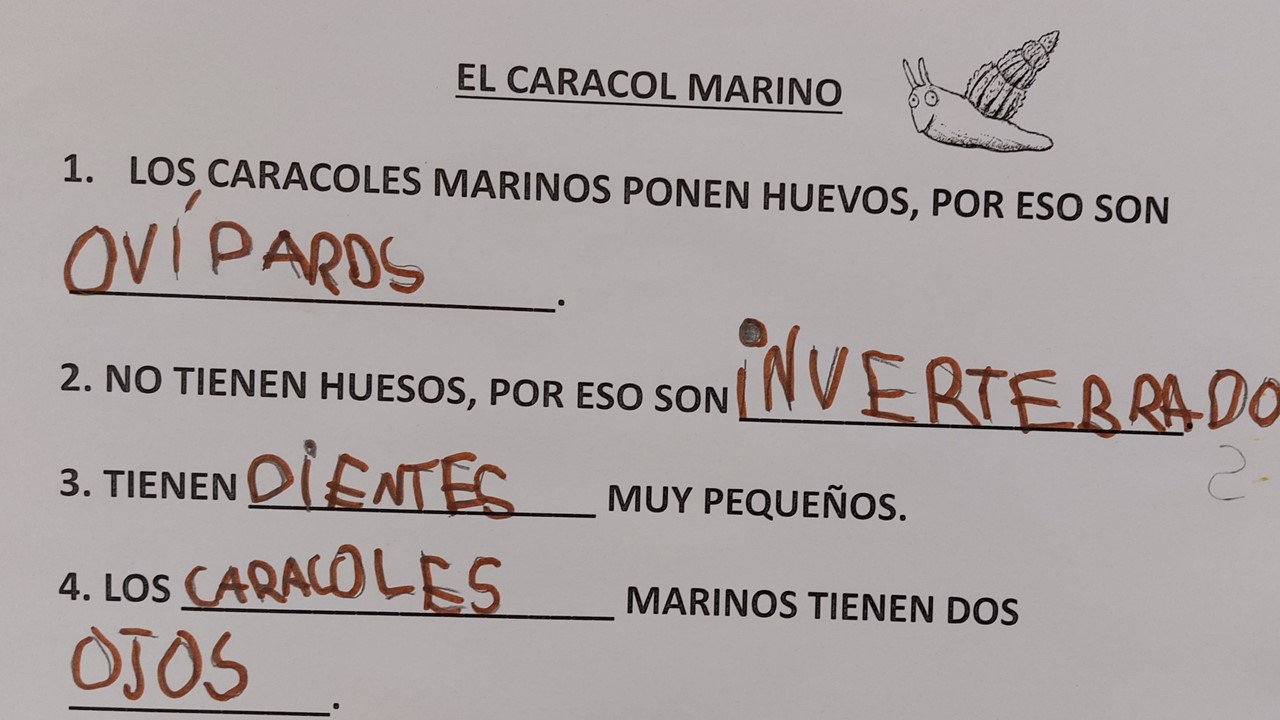 EL CARACOL MARINO
1. LOS CARACOLES MARINOS PONEN HUEVOS, POR ESO SON
OVÍPAROS.
2. NO TIENEN HUESOS, POR ESO SON iNVERTEBRADO
S
3. TIENEN DiENTES MUY PEQUEÑOS.
4. LOS CARACOLES MARINOS TIENEN DOS
OJOS.